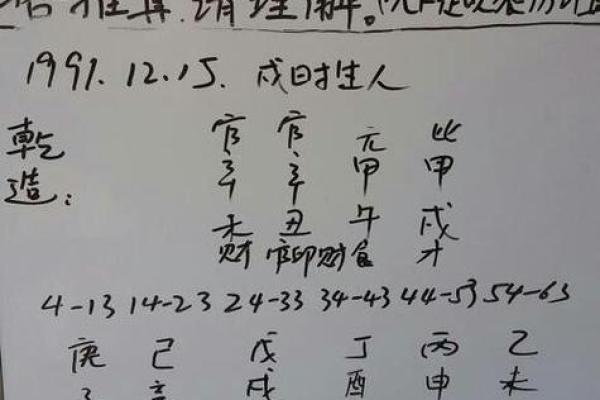 请理解。
1991.12.15. 戌时生人
官 官 元 比
乾 辛 辛 甲 甲
造: 未 丑 午 戌
财 官印财 食 才
4-13 14-23 24-33 34-43 44-53 54-63
庚 己 戊 丁 丙 乙
子 亥 戌 酉 申 未